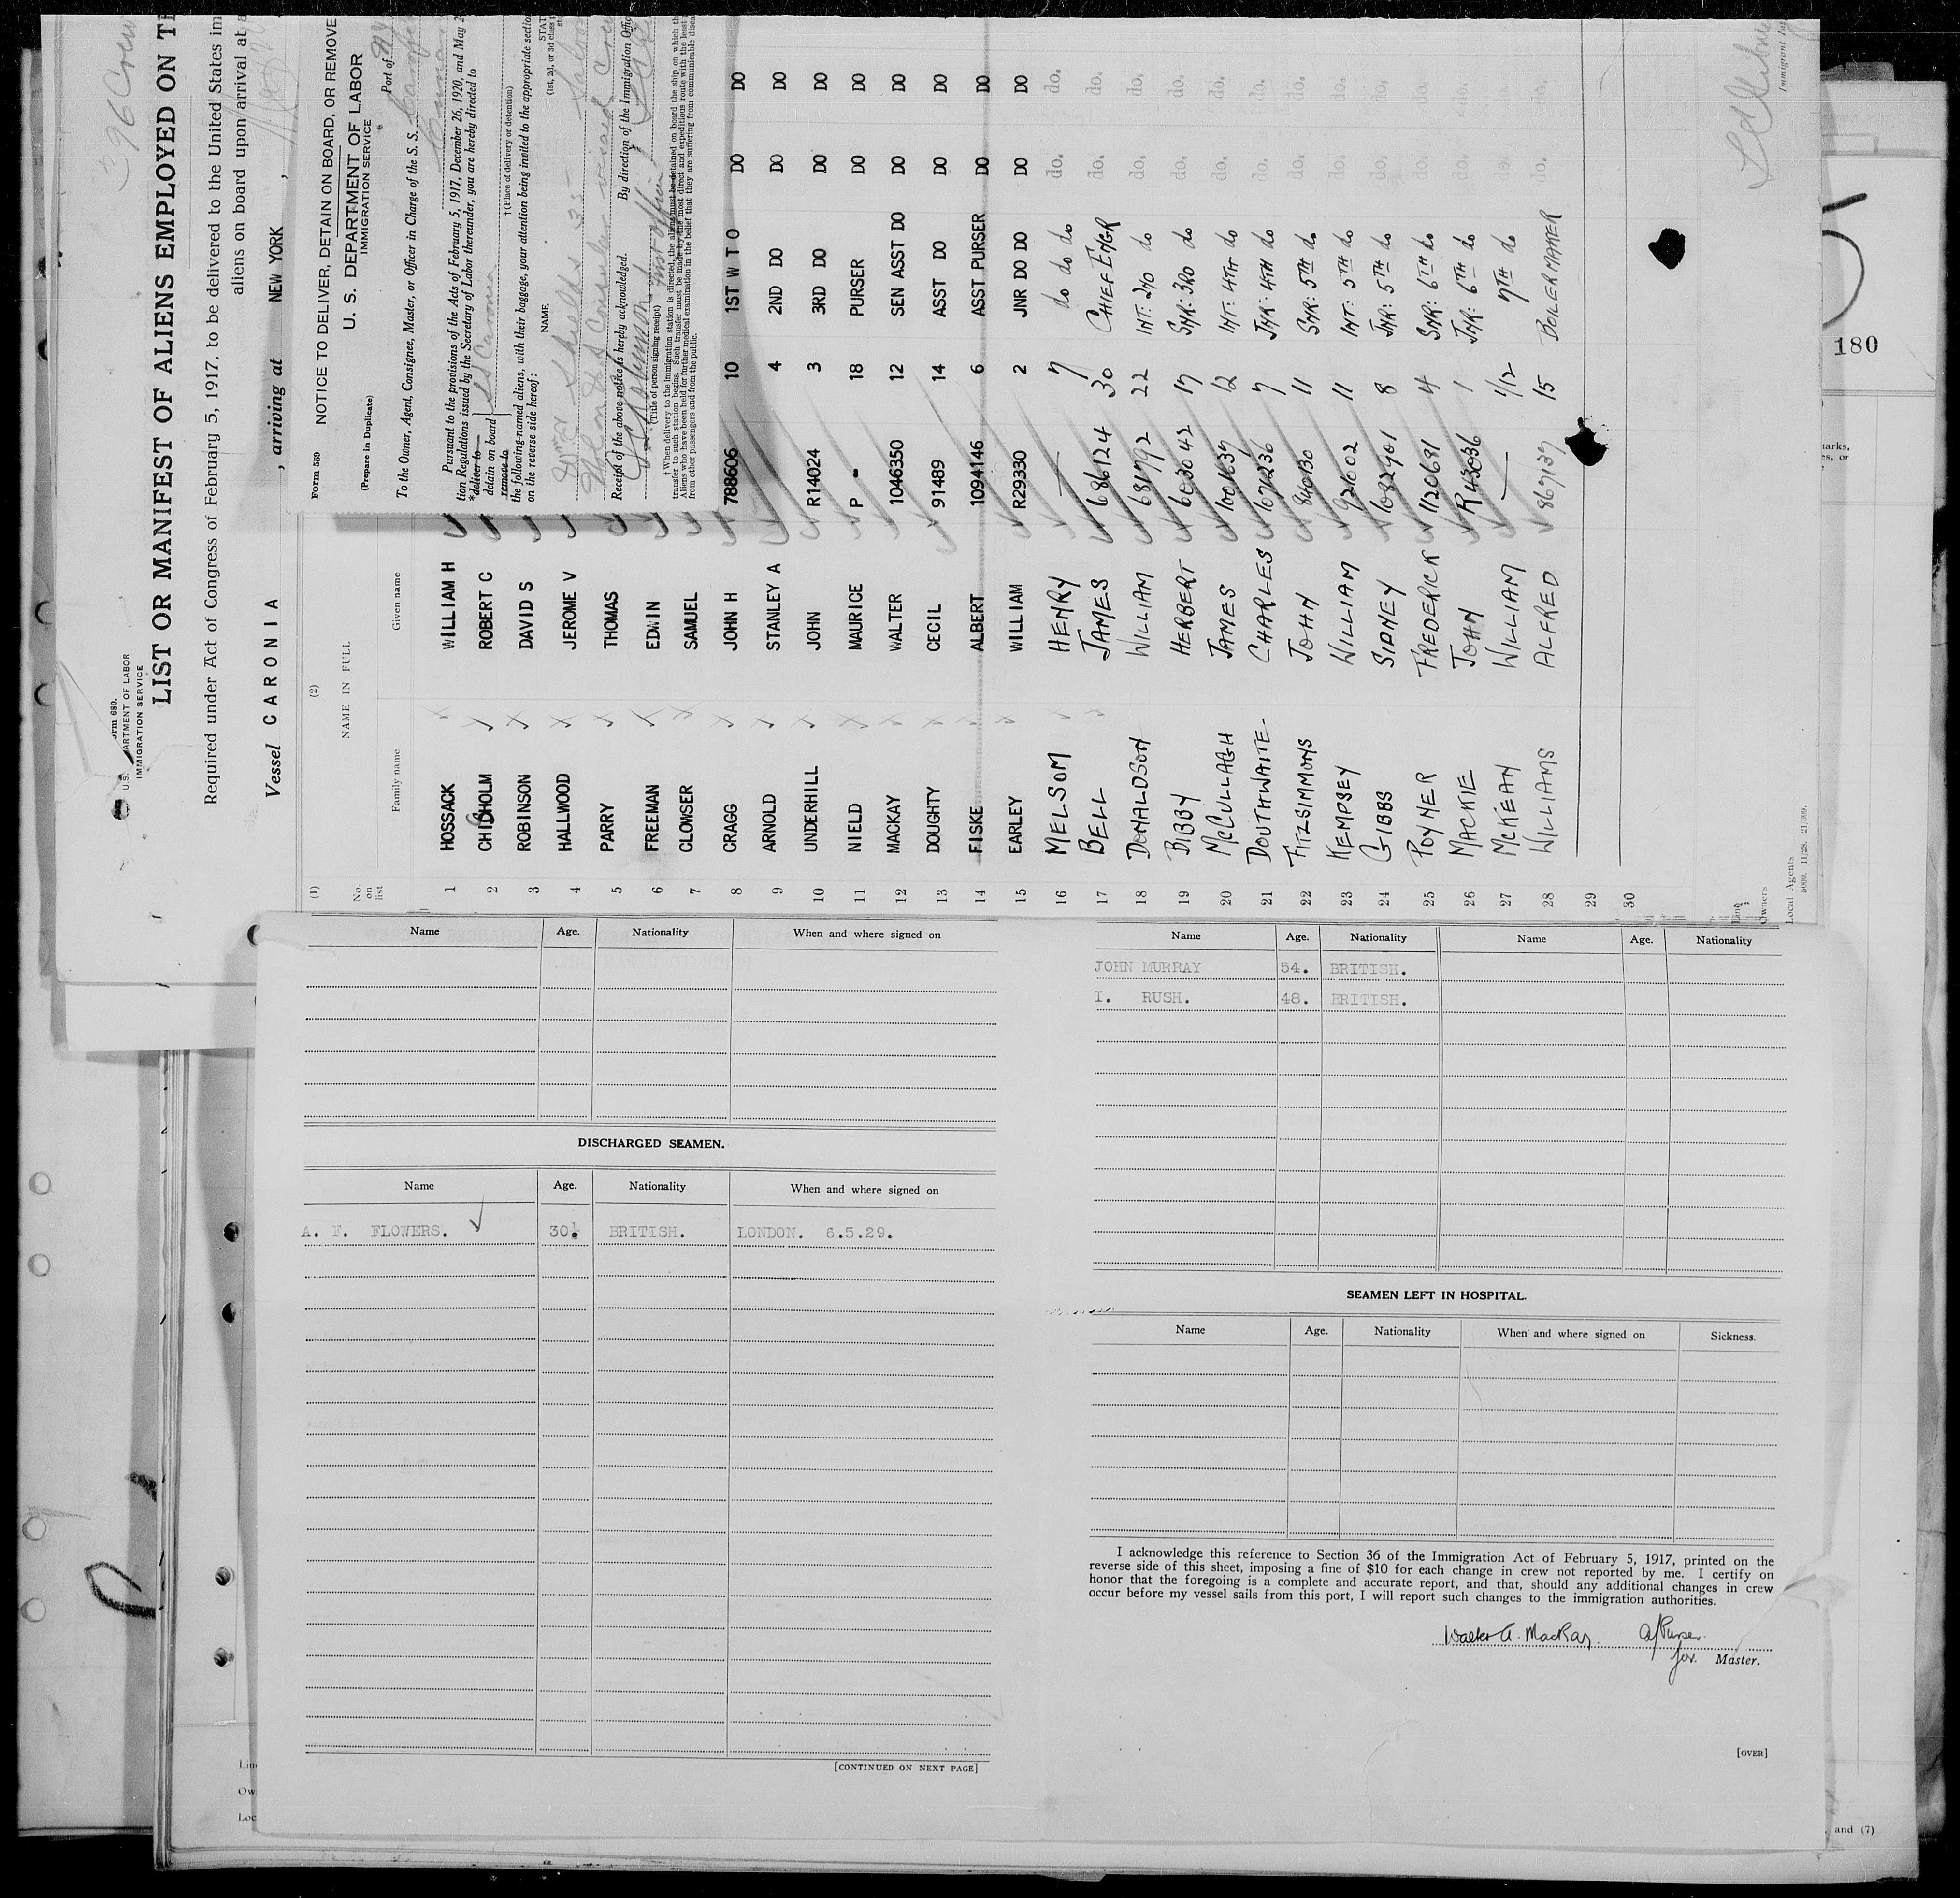 Form 689.
U.S. DEPARTMENT OF LABOR
IMMIGRATION SERVICE
396 Crew
LIST OR MANIFEST OF ALIENS EMPLOYED ON
Required under Act of Congress of February 5, 1917, to be delivered to the United States
aliens on board upon arrival at
Vessel CARONIA , arriving at NEW YORK ,
(1) (2)
No. on list
NAME IN FULL
Family name Given name
1 HOSSACK WILLIAM H
2 CHISHOLM ROBERT C
3 ROBINSON DAVID S
4 HALLWOOD JEROME V
5 PARRY THOMAS
6 FREEMAN EDWIN
7 CLOWSER SAMUEL
8 CRAGG JOHN H 788606 10 1ST W T O DO DO
9 ARNOLD STANLEY A 4 2ND DO DO DO
10 UNDERHILL JOHN R14024 3 3RD DO DO DO
11 NIELD MAURICE P 18 PURSER DO DO
12 MACKAY WALTER 1046350 12 SEN ASST DO DO DO
13 DOUGHTY CECIL 91489 14 ASST DO DO DO
14 FISKE ALBERT 1094146 6 ASST PURSER DO DO
15 EARLEY WILLIAM R29330 2 JNR DO DO DO DO
16 MELSOM HENRY — 7 do do do do. do.
17 BELL JAMES 686124 30 CHIEF ENGR do. do.
18 DONALDSON WILLIAM 681792 22 INT: 2ND do do. do.
19 BIBBY HERBERT 603042 17 SNR: 3RD do do. do.
20 McCULLAGH JAMES 1001639 12 INT: 4TH do do. do.
21 DOUTHWAITE CHARLES 1071236 7 JNR: 4TH do do. do.
22 FITZSIMMONS JOHN 840130 11 SNR: 5TH do do. do.
23 KEMPSEY WILLIAM 921002 11 INT: 5TH do do. do.
24 GIBBS SIDNEY 1082901 8 JNR: 5TH do do. do.
25 POYNER FREDERICK 1120681 4 SNR: 6TH do do. do.
26 MACKIE JOHN R43036 1 JNR: 6TH do do. do.
27 McKEAN WILLIAM — 1/12 7TH do do. do.
28 WILLIAMS ALFRED 867139 15 BOILERMAKER do. do.
29
30
Owners
Local Agents
5000. 11/28. 21/309.
Immigrant
Form 539
(Prepare in Duplicate)
NOTICE TO DELIVER, DETAIN ON BOARD, OR REMOVE
U. S. DEPARTMENT OF LABOR
IMMIGRATION SERVICE
Port of
To the Owner, Agent, Consignee, Master, or Officer in Charge of the S. S.
Pursuant to the provisions of the Acts of February 5, 1917, December 26, 1920, and May
tion Regulations issued by the Secretary of Labor thereunder, you are hereby directed to
*deliver to
detain on board SS Caronia
remove to
†(Place of delivery or detention)
the following-named aliens, with their baggage, your attention being invited to the appropriate section
on the reverse side hereof:
NAME
(1st, 2d, or 3d class
Wm Shields 35
Receipt of the above notice is hereby acknowledged. By direction of the Immigration
(Title of person signing receipt)
†When delivery to the immigration station is directed, the aliens must be detained on board the ship on which
transfer to such station begins. Such transfer must be made by the most direct and expeditious route with the least
Aliens who have been held for further medical examination in the belief that they are suffering from communicable
from other passengers and from the public.
180
Name Age. Nationality When and where signed on
DISCHARGED SEAMEN.
Name Age. Nationality When and where signed on
A. F. FLOWERS. 30. BRITISH. LONDON. 6.5.29.
[CONTINUED ON NEXT PAGE]
Name Age. Nationality Name Age. Nationality
JOHN MURRAY 54. BRITISH.
I. RUSH. 48. BRITISH.
SEAMEN LEFT IN HOSPITAL.
Name Age. Nationality When and where signed on Sickness.
I acknowledge this reference to Section 36 of the Immigration Act of February 5, 1917, printed on the
reverse side of this sheet, imposing a fine of $10 for each change in crew not reported by me. I certify on
honor that the foregoing is a complete and accurate report, and that, should any additional changes in crew
occur before my vessel sails from this port, I will report such changes to the immigration authorities.
Walter A. MacKay. A/Purser.
for. Master.
[OVER]
and (7)